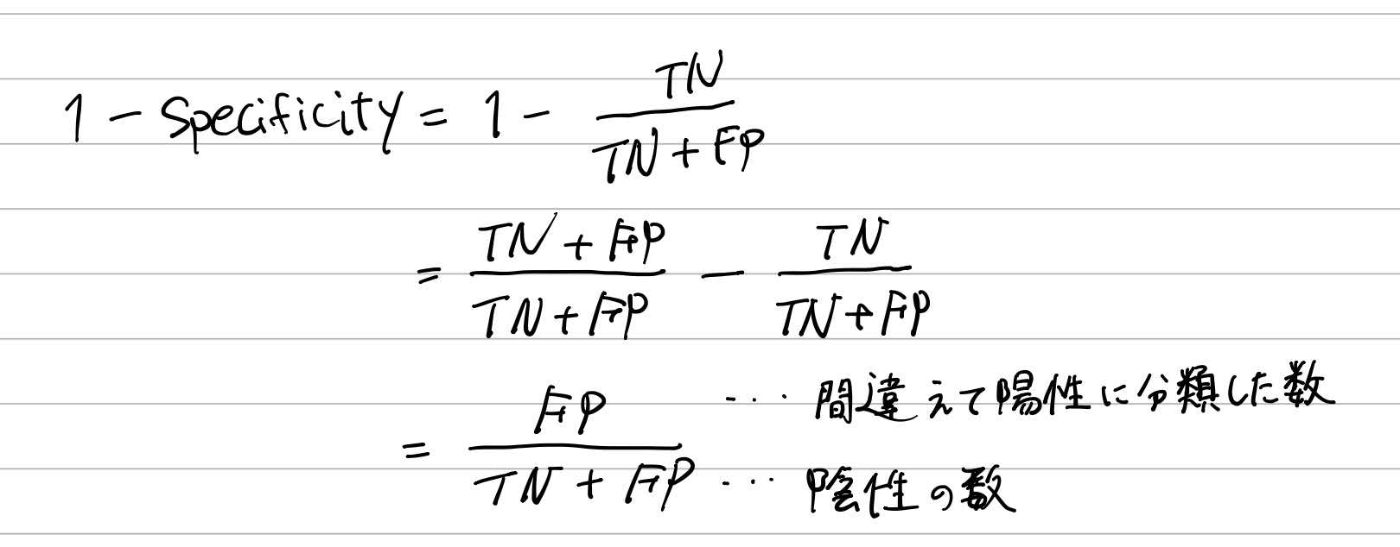 1 - Specificity = 1 - TN / (TN + FP)
= (TN + FP) / (TN + FP) - TN / (TN + FP)
= FP / (TN + FP)
… 間違えて陽性に分類した数
… 陰性の数